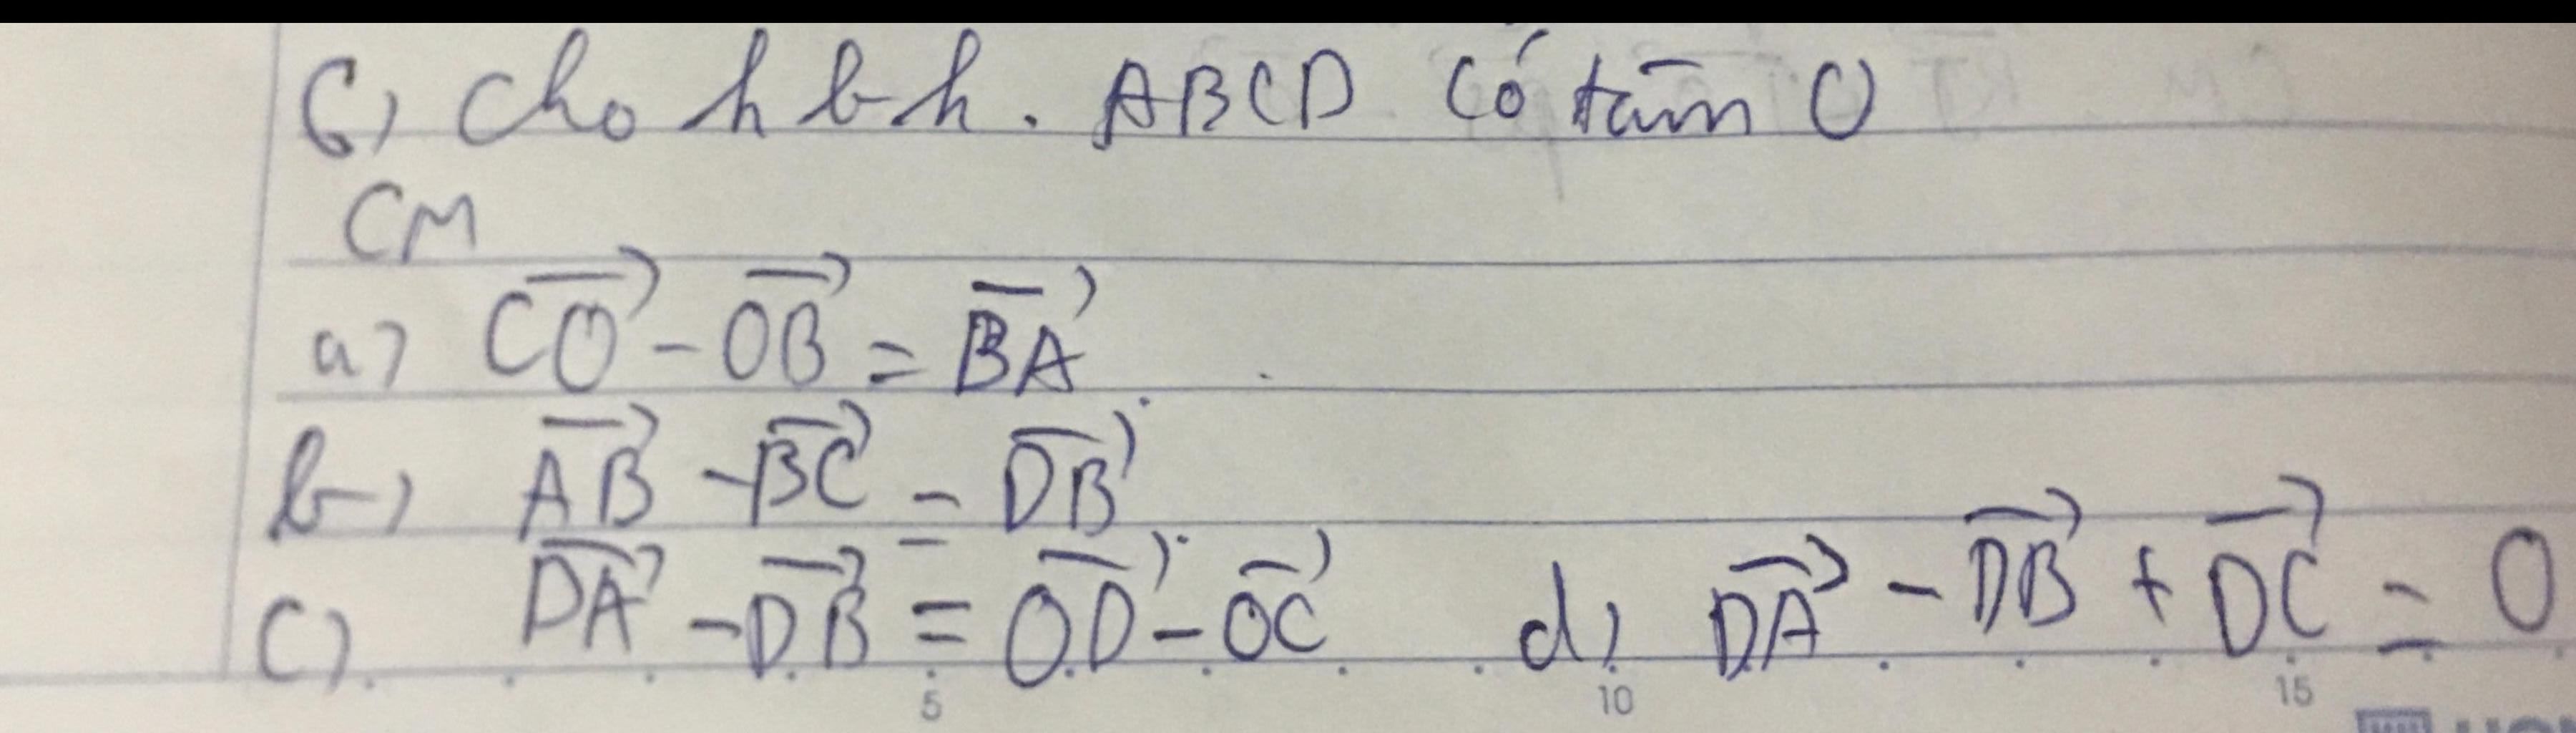 6) Cho hbh. ABCD có tâm O
CM
a) $\overrightarrow{CO} - \overrightarrow{OB} = \overrightarrow{BA}$.
b) $\overrightarrow{AB} - \overrightarrow{BC} = \overrightarrow{DB}$
c) $\overrightarrow{DA} - \overrightarrow{DB} = \overrightarrow{OD} - \overrightarrow{OC}$ d) $\overrightarrow{DA} - \overrightarrow{DB} + \overrightarrow{DC} = 0$
5 10 15